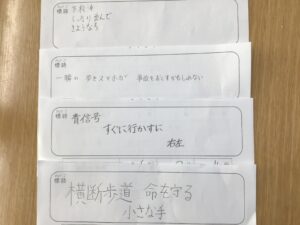 標語
下校中
ぴったり並んで
さようなら
標語
一瞬の 歩きスマホが 事故をおこすかもしれない
標語
青信号
すぐに行かずに
右左
標語
横断歩道 命を守る
小さな手